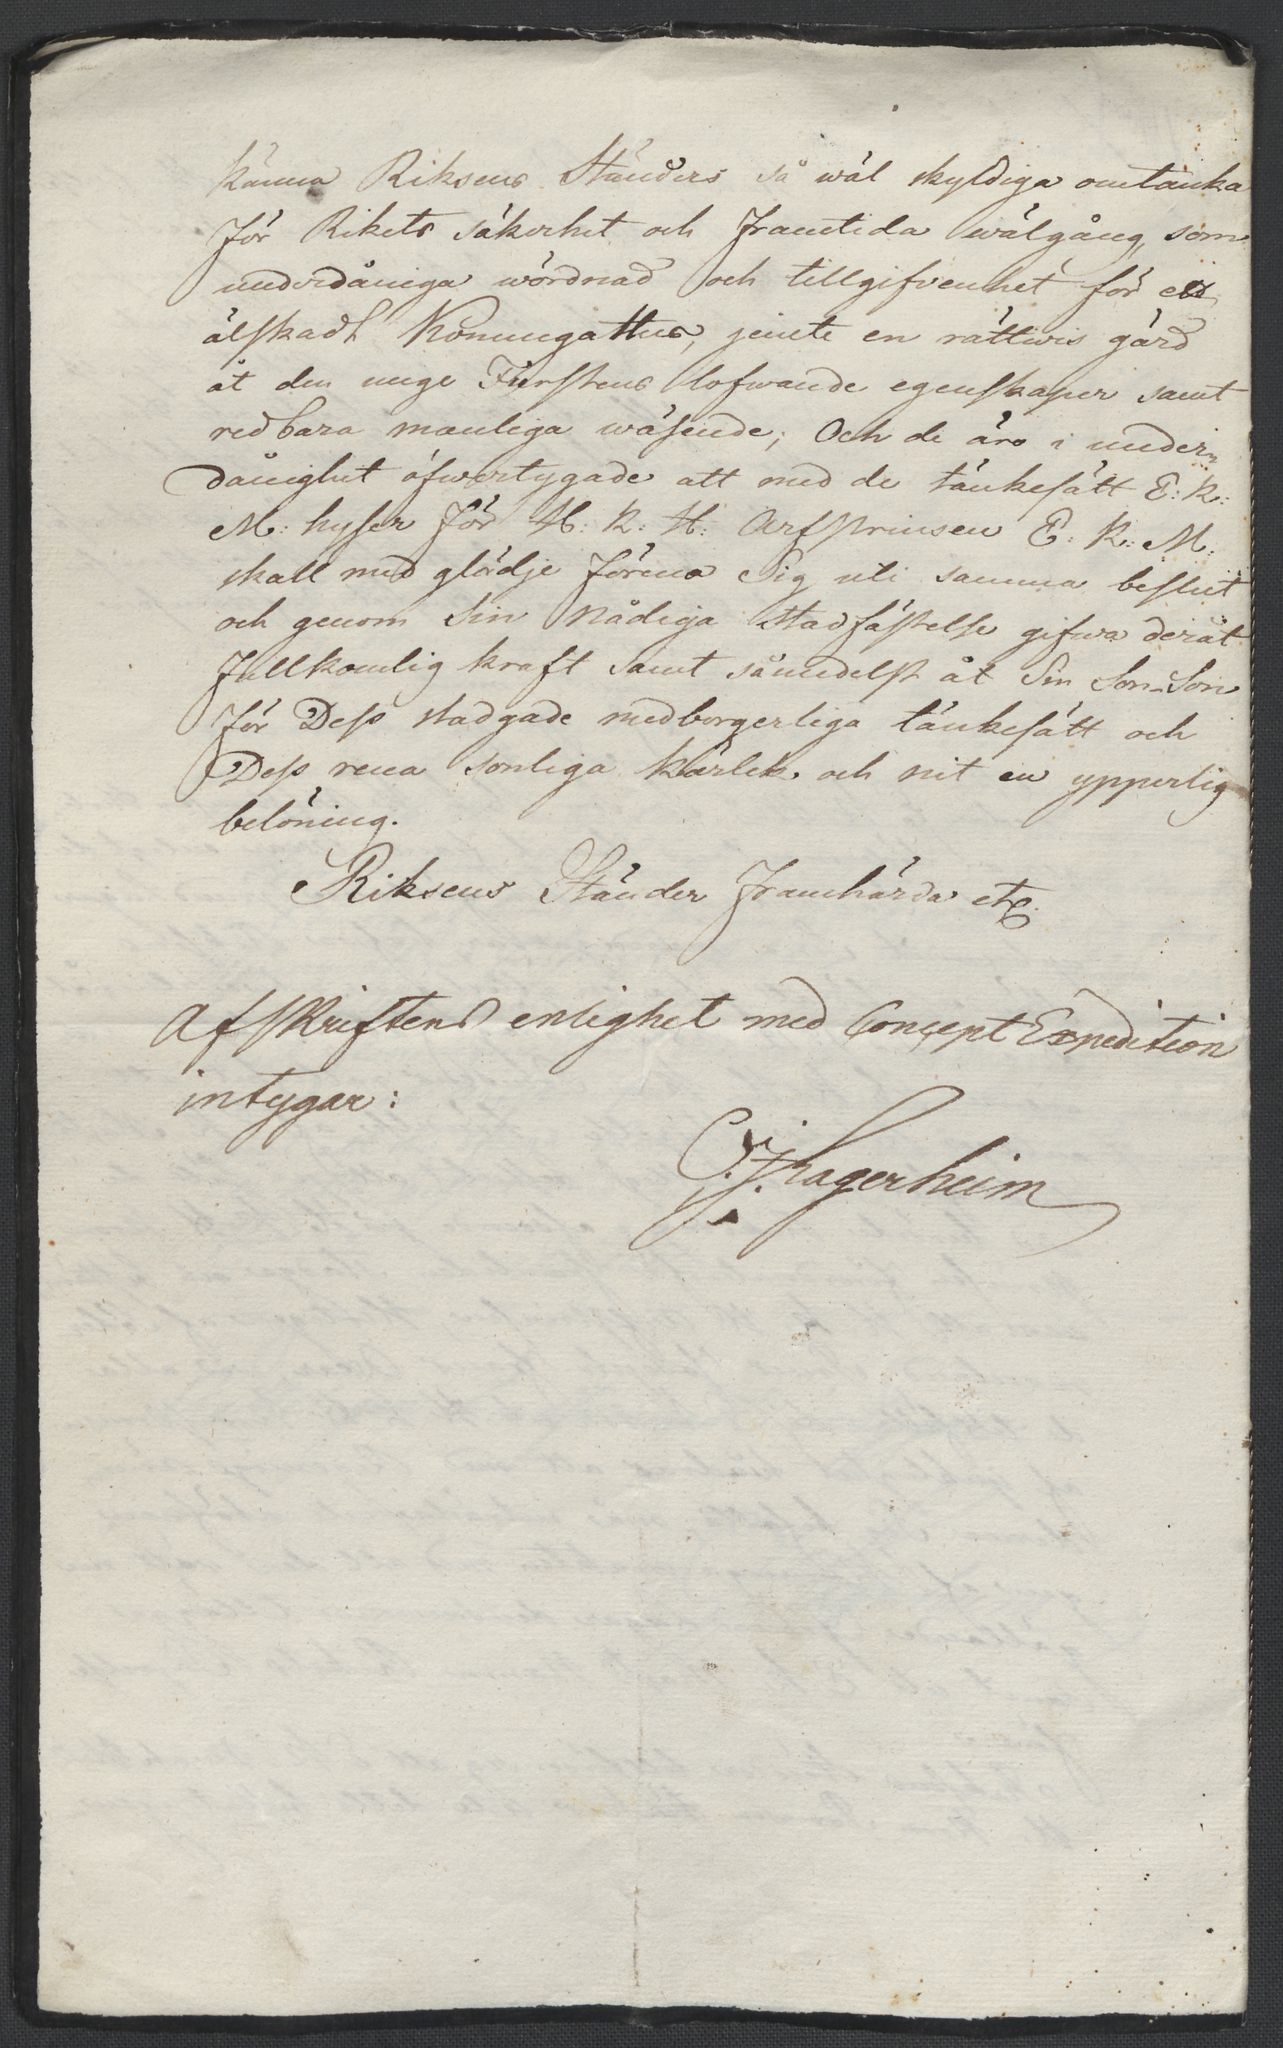 känna Riksens Ständers så wäl skyldiga omtanka
för Rikets säkerhet och framtida wälgång, som
underdåniga wördnad och tillgifvenhet för
älskadt Konungahus, jemte en rättwis gärd
åt den unge Furstens lofwande egenskaper samt
redbara manliga wäsende; Och de äro i under,,
dånighet öfwertygade att med de tänkesätt E: K:
M: hyser för H: K: H: Arfprinsen E: K: M:
skall med glädje förena Sig uti samma beslut
och genom Sin Nådiga Stadfästelse gifwa deråt
fullkomlig kraft samt såmedelst åt Sin Son-Son
för Dess stadgade medborgerliga tänkesätt och
Dess rena sonliga kärlek och nit en ypperlig
belöning.
Riksens Ständer framhärda etc.
Afskriftens enlighet med Concept Expedition
intygar:
Lagerheim